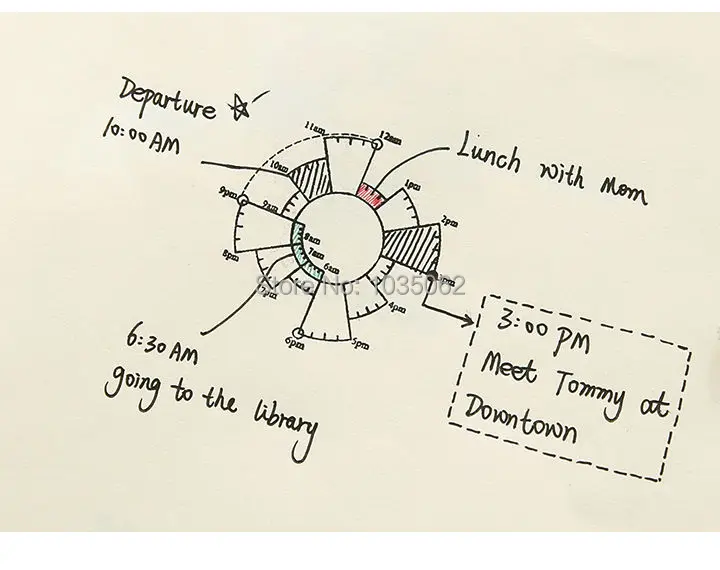 Departure ☆
10:00 AM
Lunch with Mom
11am
12am
10am
1pm
9pm
9am
2pm
8am
7am
8pm
6am
Store No: 1035062
4pm
6pm
5pm
6:30 AM
going to the library
3:00 PM
Meet Tommy at
Downtown